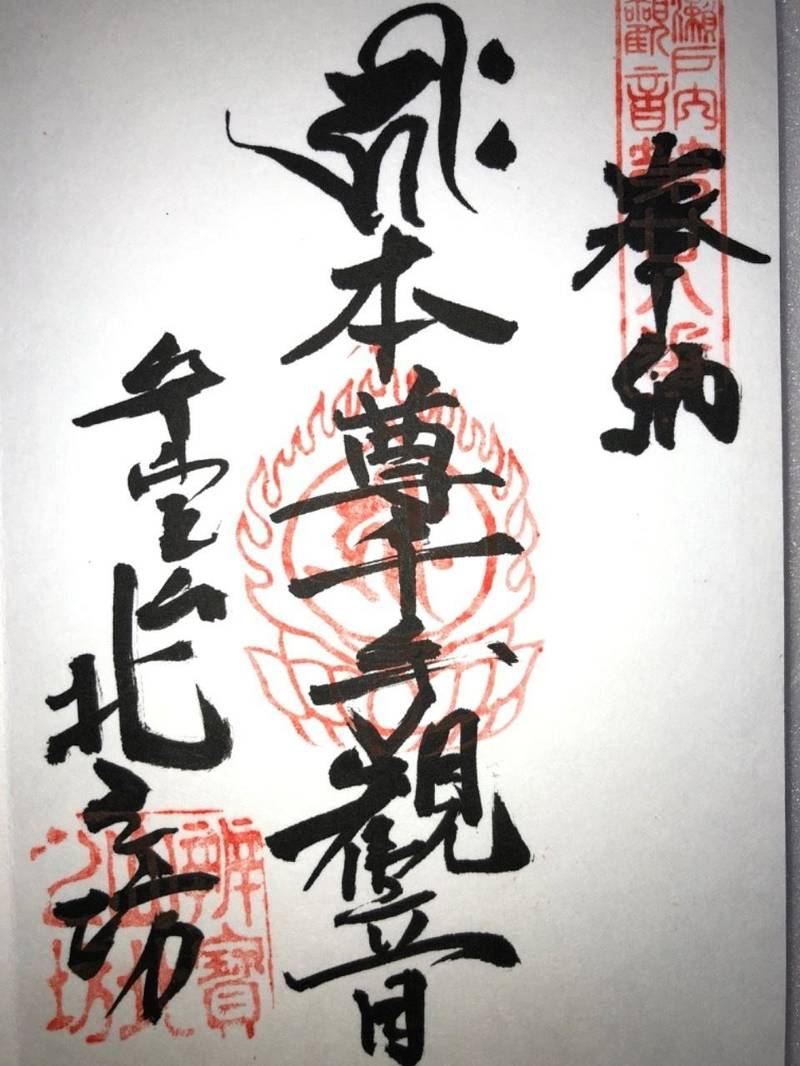 瀬戸内
觀音
奉納
本尊千手觀音
弁宝山北之坊
辨寶
山北
坊